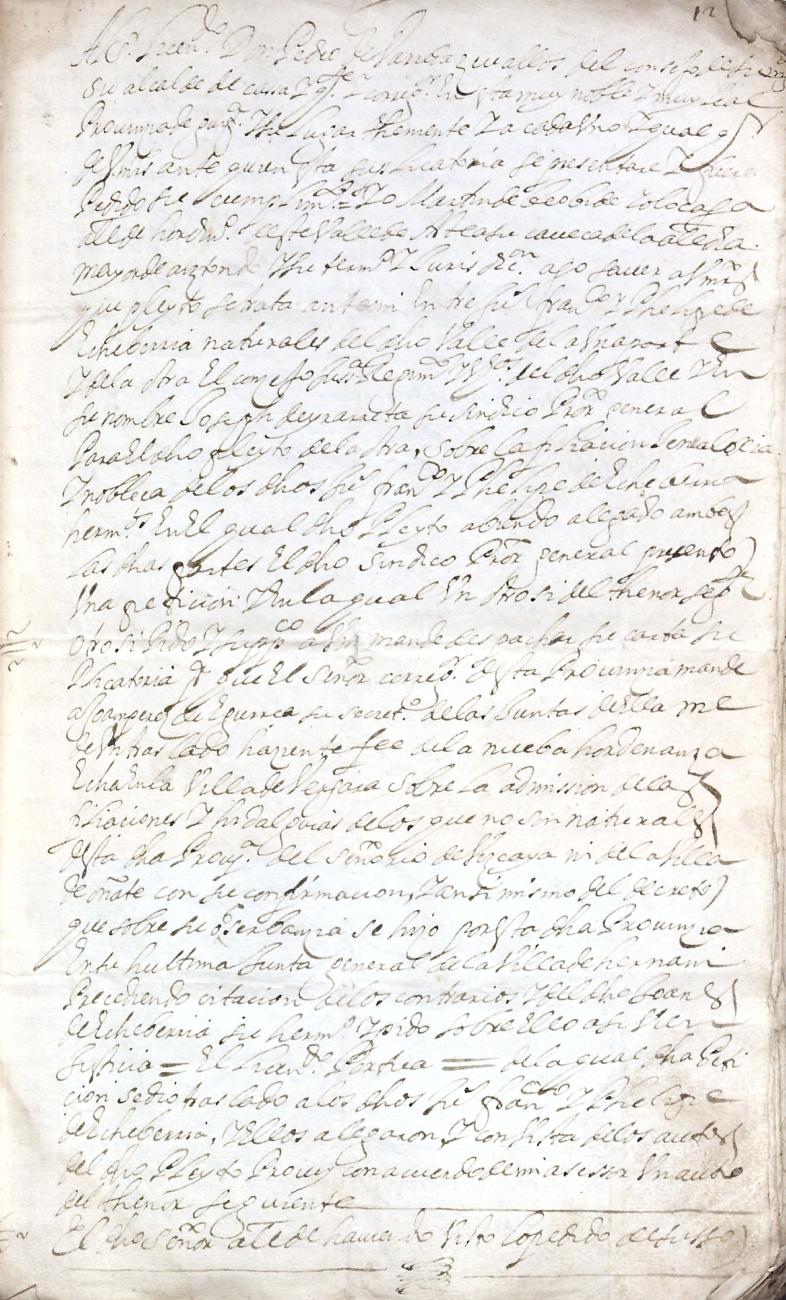 12
Al Sr. Licendo. Don Pedro de Zevallos del consejo de su
su alcalde de casa y corregr. En esta muy noble y muy leal
Provinzia de guipa. Thenemente y a cada uno y qual
de Vmds ante quien esta suplicatoria se presentare y
Pedido su cumplimto. = Yo Martin de
alle. hordino. deste Valle de su caveca de la aldea
mayor de su termo. y Juris dicon. ago saver a Vmds
que pleyto se trata ante mi Entre franco y Phelipe de
Echeberria naturales del dho Valle de la Una parte
y de la otra El concejo Justa. Regimto. y del dho Valle y En
su nombre Joseph de yarreta su sindico Pror general
Para El dho pleyto de la otra, sobre la filiacion Jenealoxia
y nobleca de los dhos franco y Phelipe de Echeverria
hermos En El qual dho Pleyto abiendo alegado ambas
las dhas partes El dho sindico Pror general presento
Una peticion y En la qual Un otro si del thenor sigte
otro si Pido y suppco a Vm mande despachar su carta su
plicatoria pa que El señor corregr. desta Provinzia mande
a de Egurca su secreto. de las Juntas della me
de Un traslado hazientefee de la nueba hordenanza
Echa En la Villa de Vergara sobre la admission de las
filiaciones y hidalguias de los que no son naturales
desta dha Provza. del señorio de Vizcaya ni de la Villa
de oñate con su confirmacion, y ansi mismo del decreto
que sobre su oserbanzia se hizo por esta dha Provinzia
En su hultima Junta general de la Villa de hernani
Precediendo citacion de los contrarios y del dho Joanes
de Echeberria su hermo. y pido sobre Ello asi bien
Justicia = El Licendo. = de la qual dha Peti
cion se dio traslado a los dhos franco y Phelipe
de Echeberria, y Ellos alegaron, y con Vista de los autos
del dho Pleyto Provey con acuerdo de mi asessor Un auto
del thenor seguiente
El dho señor alle. de haviendo Visto lo pedido de susso